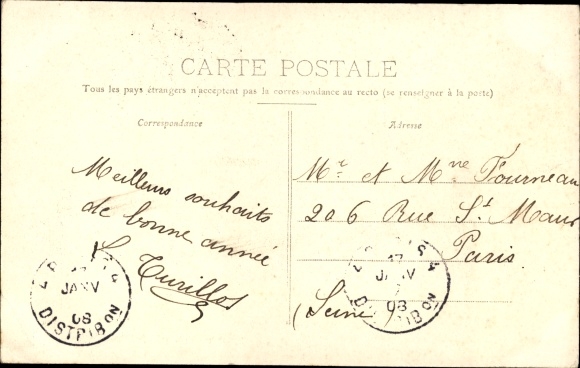 CARTE POSTALE
Tous les pays étrangers n'acceptent pas la correspondance au recto (se renseigner à la poste)
Correspondance
Adresse
Meilleurs souhaits
de bonne année
Mr et Mme Fourneau
206 Rue St Maur
Paris
(Seine)
17
JANV
08
DISTRIBON
17
JANV
08